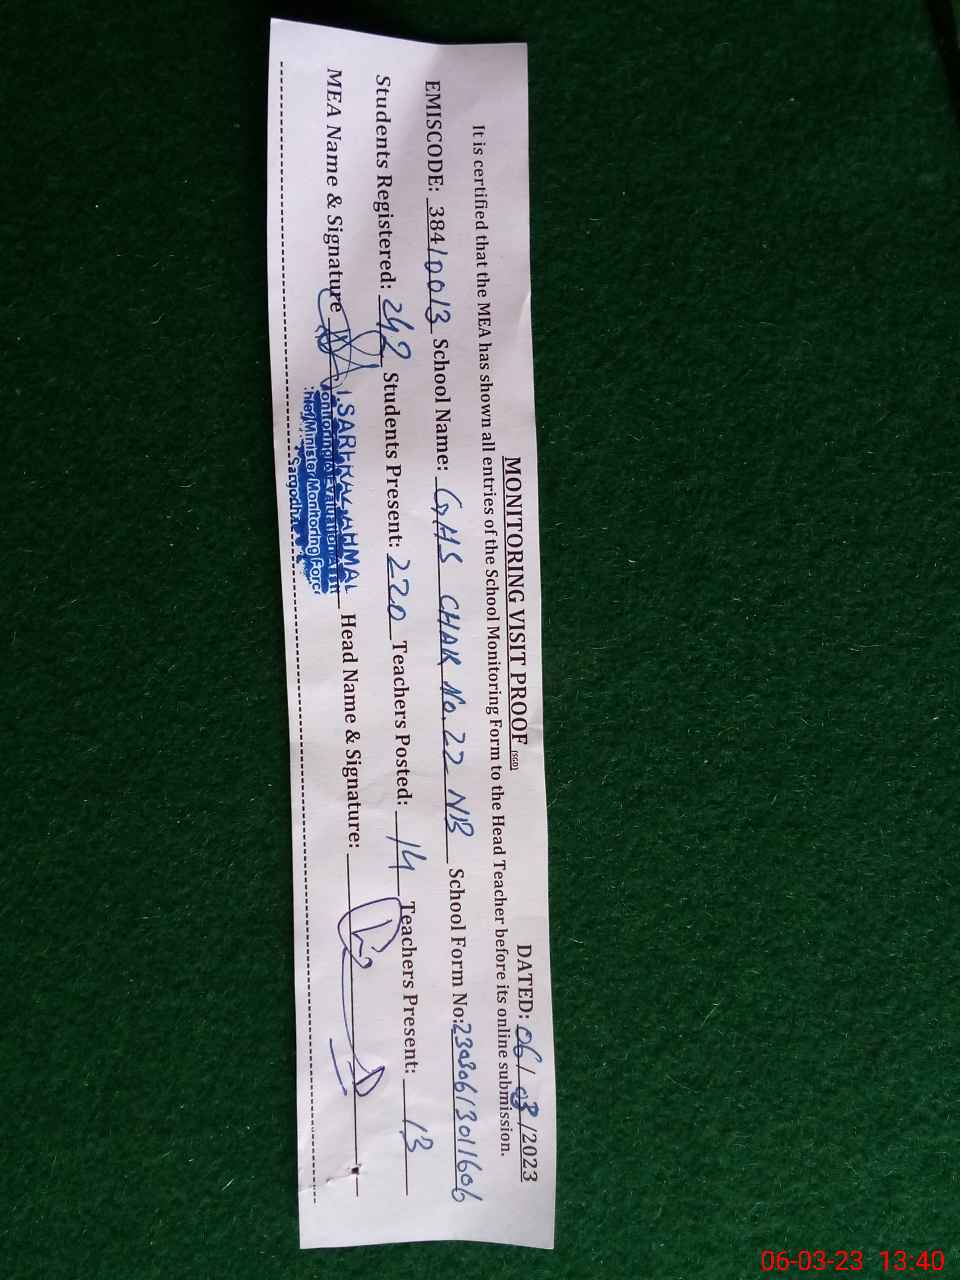 MONITORING VISIT PROOF (SGD) DATED: 06/03/2023
It is certified that the MEA has shown all entries of the School Monitoring Form to the Head Teacher before its online submission.
EMISCODE: 38410013 School Name: GHS CHAK No. 22 NB School Form No: 2303061301606
Students Registered: 242 Students Present: 220 Teachers Posted: 14 Teachers Present: 13
MEA Name & Signature Head Name & Signature:
SARFRAZ AHMAD
Monitoring & Evaluation
Chief Minister Monitoring Force
Sargodha
06-03-23 13:40